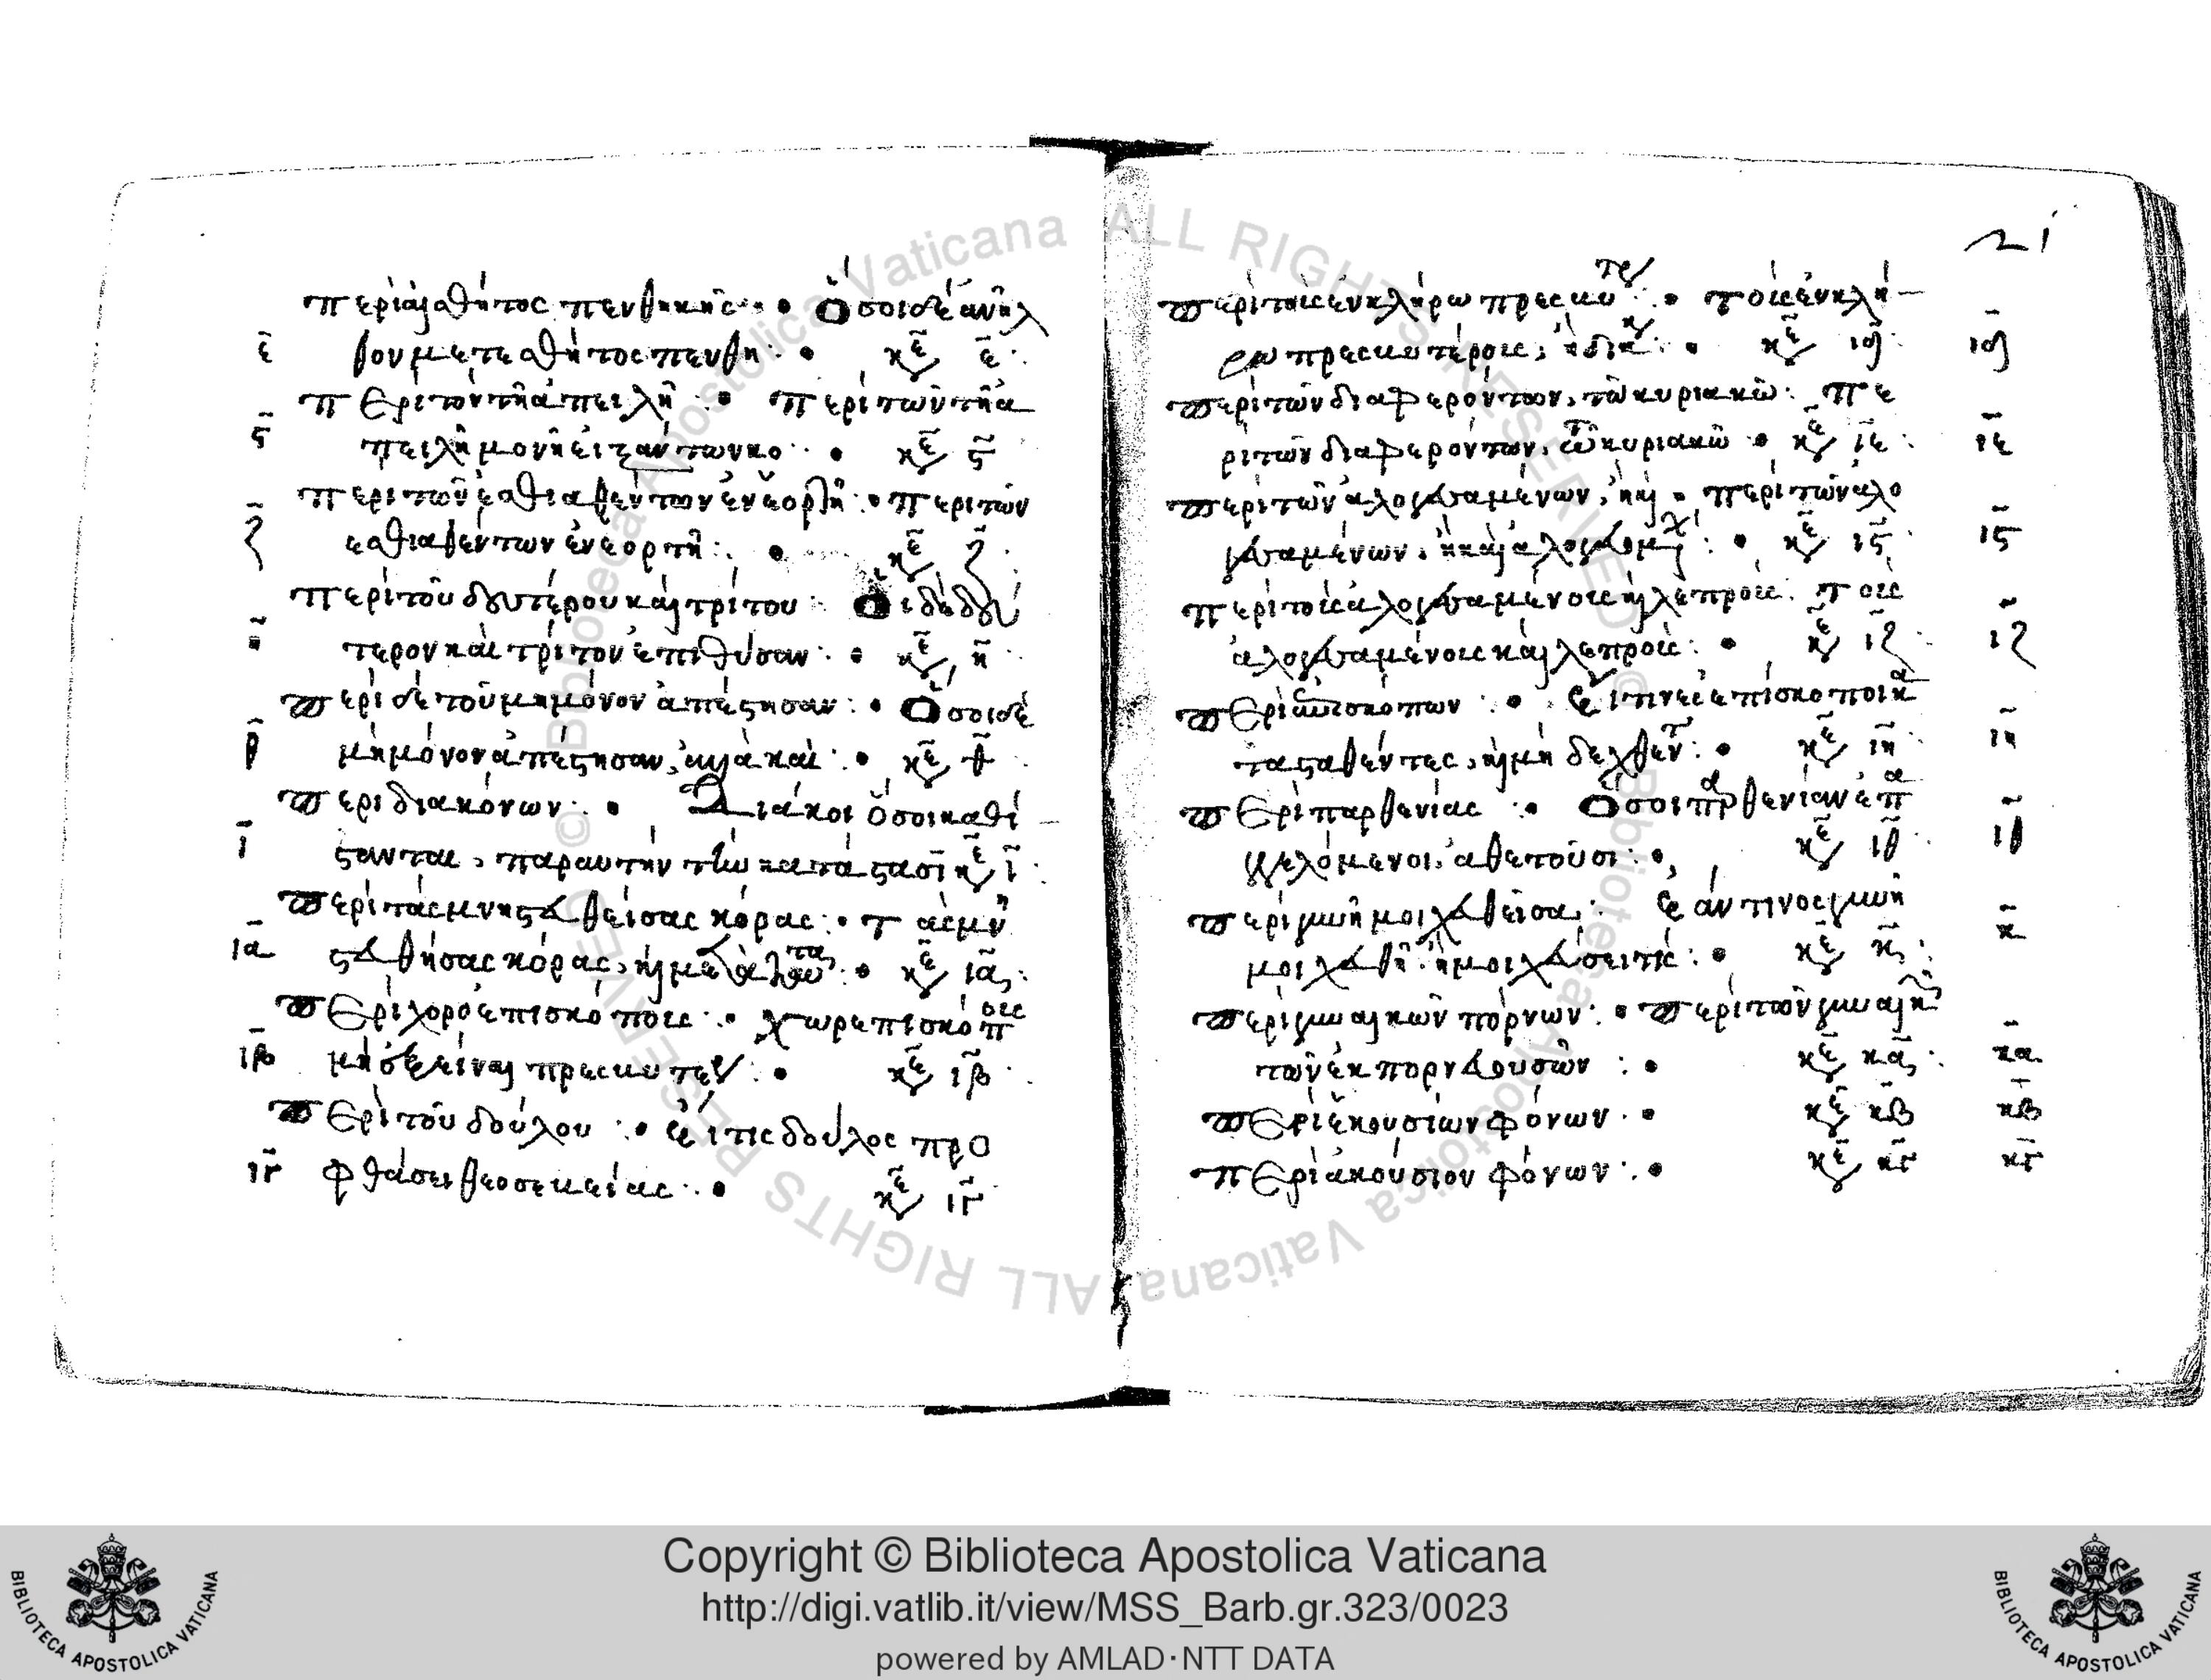 περὶ αἰσθῆτος πενθηκῆς · Ὅσοι δὲ ἀνῆλ
ε θον μετε αθῆτος πενθη · κε ε
περὶ τον τῆ ἀπειλῆ · περὶ τῶν τῆ ἀ
ς πειλῆ μονῆ εἰξαντων κο · κε ς
περι τῶν ἐσθιαθέντων ἐν ἑορτῆ · περι τῶν
ζ εσθιαθέντων ἐν εορτῆ · κε ζ
περὶ τοῦ δευτέρου καὶ τρίτου · Οἱ δὲ δεύ
η τερον καὶ τρίτον ἐπιθυσαν · κε η
περὶ δὲ τοῦ μὴ μόνον ἀπέστησαν · Ὅσοι δὲ
θ μὴ μόνον ἀπέστησαν, ἀλλὰ καὶ · κε θ
περι διακόνων · Διάκοι ὅσοι καθί
ι σταντai, παραυτὴν τὴν κατάστασι κε ι
περὶ τὰς μνηστευθείσας κόρας · Τὰς μν
ια στευθήσας κόρας, κε ια
περὶ χοροεπισκόποις · χωρεπισκόποις
ιβ μὴ ἐξεῖναι πρεσβυτερ · κε ιβ
περὶ τοῦ δούλου · Εἴ τις δοῦλος προ
ιγ φθάσει θεοσεβείας · κε ιγ
21
περὶ τοῖς ἐν κλήρω πρεσβυτερ · τοῖς ἐν κλή
ρω πρεσβυτέροις, ἢ δια κ · κε ιδ ιδ
περὶ τῶν διαφερόντων, τῶ κυριακῶ · πε
ρι τῶν διαφερόντων, τῶ κυριακῶ · κε ιε ιε
περὶ τῶν ἀλογευσαμένων, ἢ κὶ · περὶ τῶν ἀλο
γευσαμένων, ἢ καὶ ἀλογευομ · κε ις ις
περὶ τοῖς ἀλογευσαμένοις κὶ λεπροῖς · τοῖς
ἀλογευσαμένοις καὶ λεπροῖς · κε ιζ ιζ
περὶ ἐπισκόπων · Εἴ τινες ἐπίσκοποι κα
τασταθέντες, κὶ μὴ δεχθεντ · κε ιη ιη
περὶ παρθενίας · Ὅσοι παρθενίαν ἐπα
γγελόμενοι, ἀθετοῦσι · κε ιθ ιθ
περὶ γυνὴ μοιχευθεῖσα · Ἐάν τινος γυνὴ
μοιχευθῆ, ἢ μοιχεύσει τις · κε κ κ
περὶ γυναικῶν πόρνων · περὶ τῶν γυναικ
τῶν ἐκπορνευουσῶν · κε κα κα
περὶ ἑκουσίων φόνων · κε κβ κβ
περὶ ἀκούσιον φόνων · κε κγ κγ
Copyright © Biblioteca Apostolica Vaticana
http://digi.vatlib.it/view/MSS_Barb.gr.323/0023
powered by AMLAD·NTT DATA
BIBLIOTECA APOSTOLICA VATICANA
BIBLIOTECA APOSTOLICA VATICANA